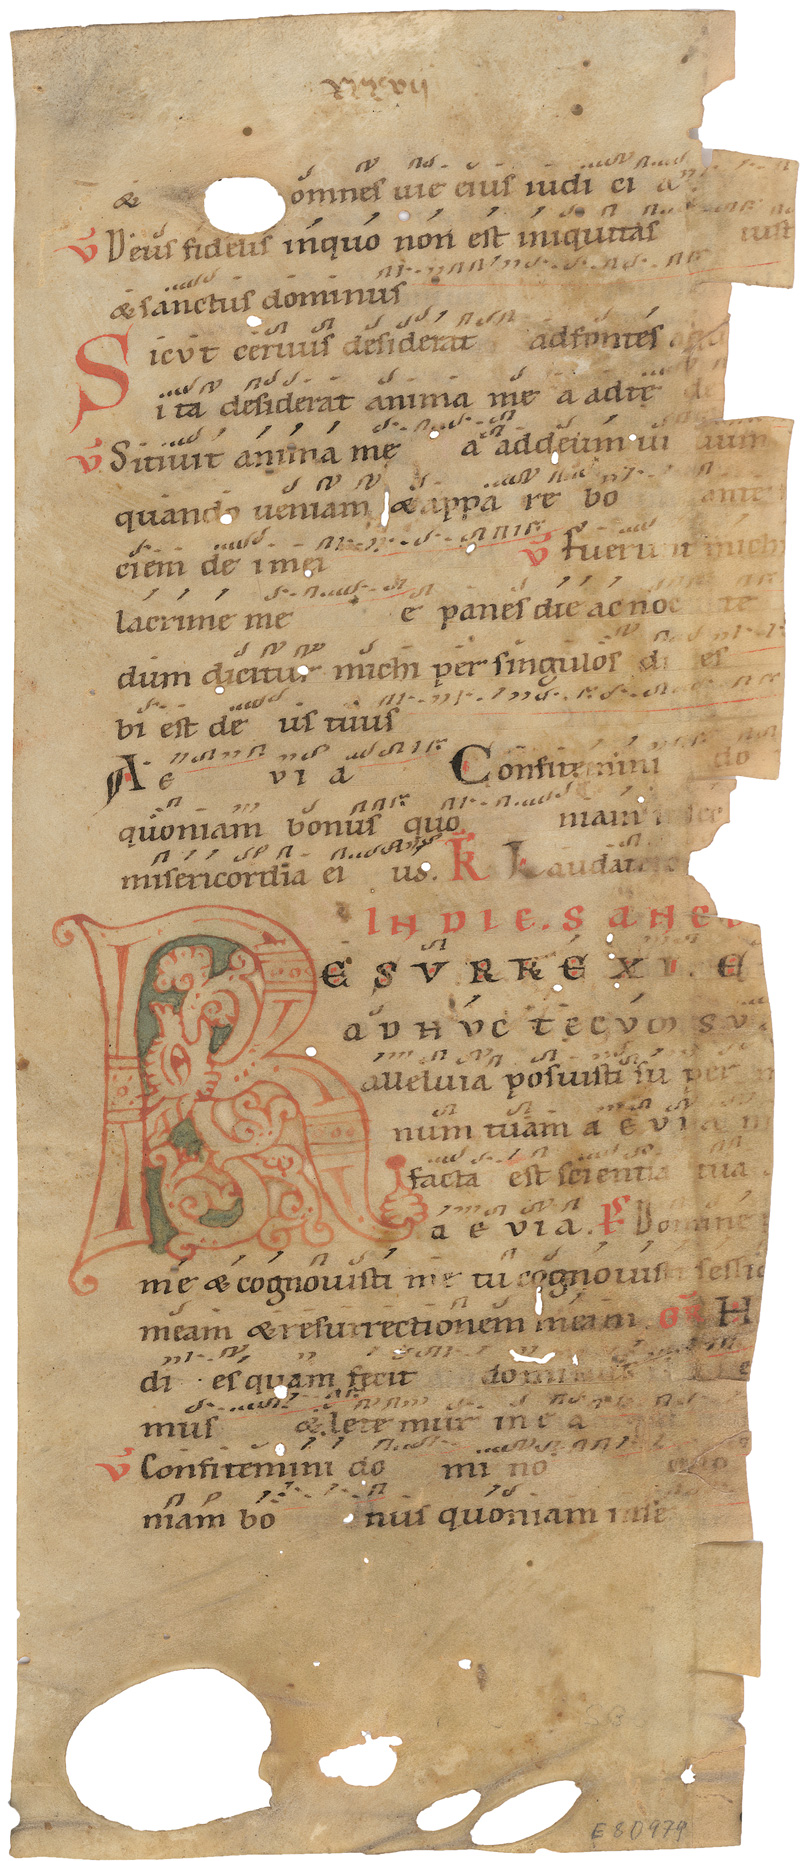 xxxvii
& omnes uie eius iudi ci a
V Deus fidelis inquo non est iniquitas iust
& sanctus dominus
Sicvt ceruus desiderat adfontes aqua
ita desiderat anima me a adte de
V Sitiuit anima me a addeum ui uum
quando ueniam & appa re bo ante
ciem de i mei V fuerunt michi
lacrime me e panes die ac noc te
dum dicitur michi per singulos di es
bi est de us tuus
A e v i a Confitemini do
quoniam bonus quo niam in
misericordia ei us. Laudate
IN DIE. SANC
RESVRREXI. E
ADHVC TECVM SV
alleluia posuisti su per m
num tuam a e v i a m
facta est scientia tua
a e v i a. Ps Domine
me & cognouisti me tu cognouisti sessio
meam & resurrectionem meam. H
di es quam fecit dominus
mus & lete mur in e a
V Confitemini do mi no quo
niam bo nus quoniam in se
E80979